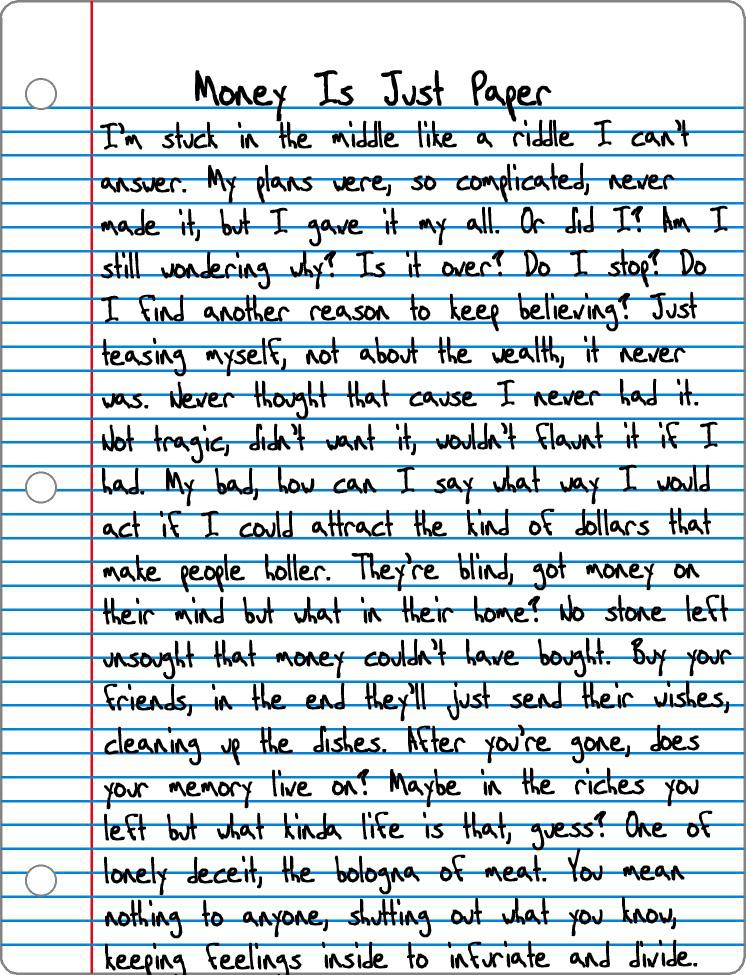 Money Is Just Paper
I'm stuck in the middle like a riddle I can't
answer. My plans were, so complicated, never
made it, but I gave it my all. Or did I? Am I
still wondering why? Is it over? Do I stop? Do
I find another reason to keep believing? Just
teasing myself, not about the wealth, it never
was. Never thought that cause I never had it.
Not tragic, didn't want it, wouldn't flaunt it if I
had. My bad, how can I say what way I would
act if I could attract the kind of dollars that
make people holler. They're blind, got money on
their mind but what in their home? No stone left
unsought that money couldn't have bought. Buy your
friends, in the end they'll just send their wishes,
cleaning up the dishes. After you're gone, does
your memory live on? Maybe in the riches you
left but what kinda life is that, guess? One of
lonely deceit, the bologna of meat. You mean
nothing to anyone, shutting out what you know,
keeping feelings inside to infuriate and divide.